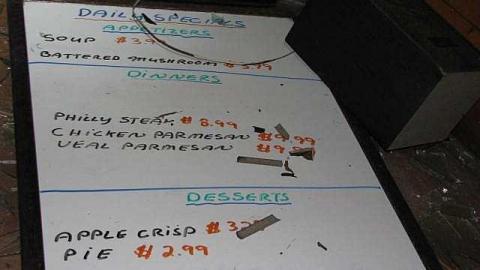 DAILY SPECIALS
APPETIZERS
SOUP
BATTERED MUSHROOM
DINNERS
PHILLY STEAK # 8.99
CHICKEN PARMESAN
VEAL PARMESAN
DESSERTS
APPLE CRISP
PIE # 2.99